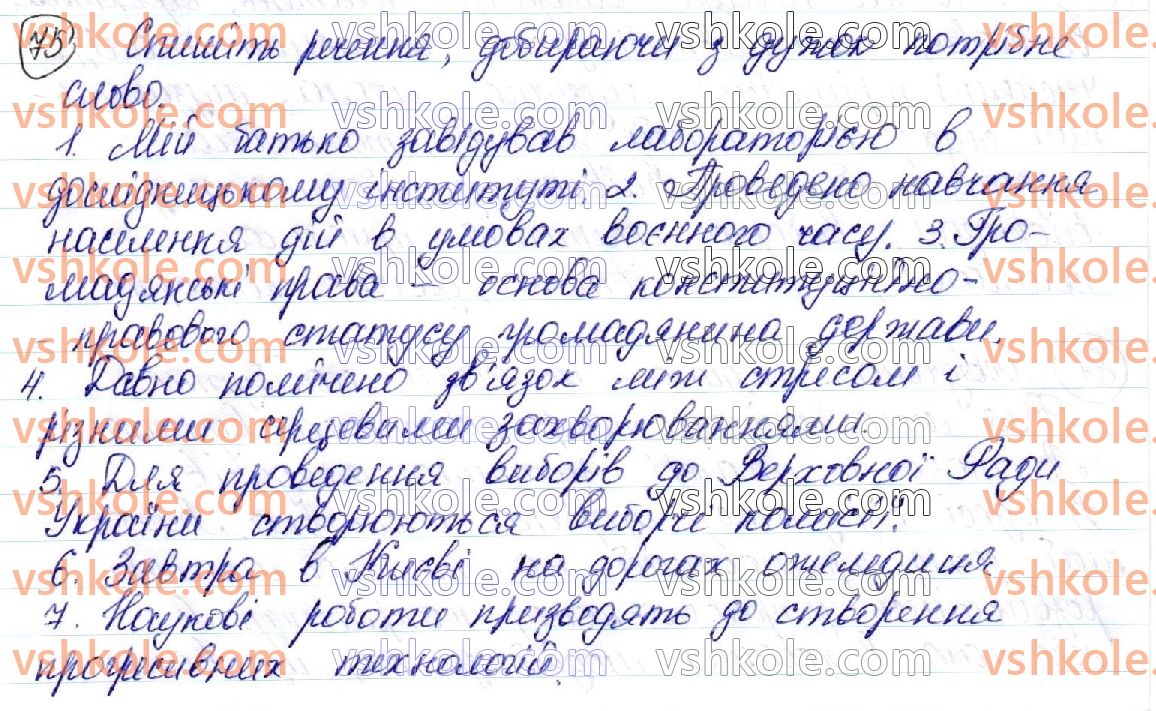 75 Спишіть речення, добираючи з дужок потрібне
слово.
1. Мій батько завідував лабораторією в
дослідницькому інституті. 2. Проведено навчання
населення дій в умовах воєнного часу. 3. Гро-
мадянські права – основа конституційно-
- правового статусу громадянина держави.
4. Давно помічено зв'язок між стресом і
різними серцевими захворюваннями.
5. Для проведення виборів до Верховної Ради
України створюються виборчі комісії.
6. Завтра в Києві на дорогах ожеледиця
7. Наукові роботи призводять до створення
прогресивних технологій.
vshkole.com